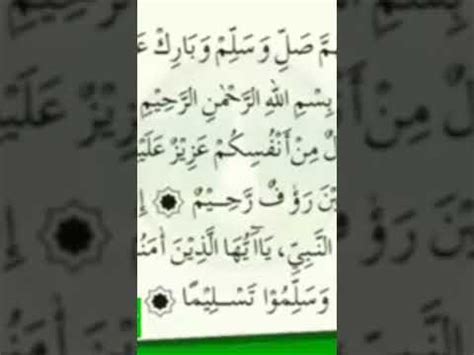 مَّ صَلِّ وَسَلِّمْ وَبَارِكْ عَ
بِسْمِ اللهِ الرَّحْمٰنِ الرَّحِيْمِ
لٌ مِنْ أَنْفُسِكُمْ عَزِيْزٌ عَلَيْ
يْنَ رَؤُفٌ رَّحِيْمٌ ۞ إِ
النَّبِيِّ، يَآأَيُّهَا الَّذِيْنَ أٰمَنُ
وَسَلِّمُوْا تَسْلِيْمًا ۞